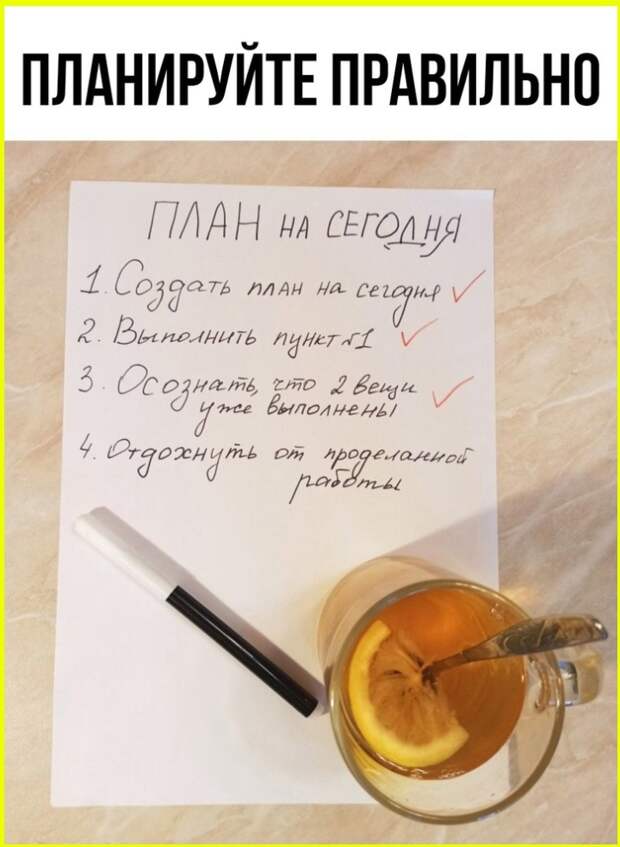 ПЛАНИРУЙТЕ ПРАВИЛЬНО
ПЛАН на СЕГОДНЯ
1. Создать план на сегодня
2. Выполнить пункт №1
3. Осознать, что 2 вещи
уже выполнены
4. Отдохнуть от проделанной
работы